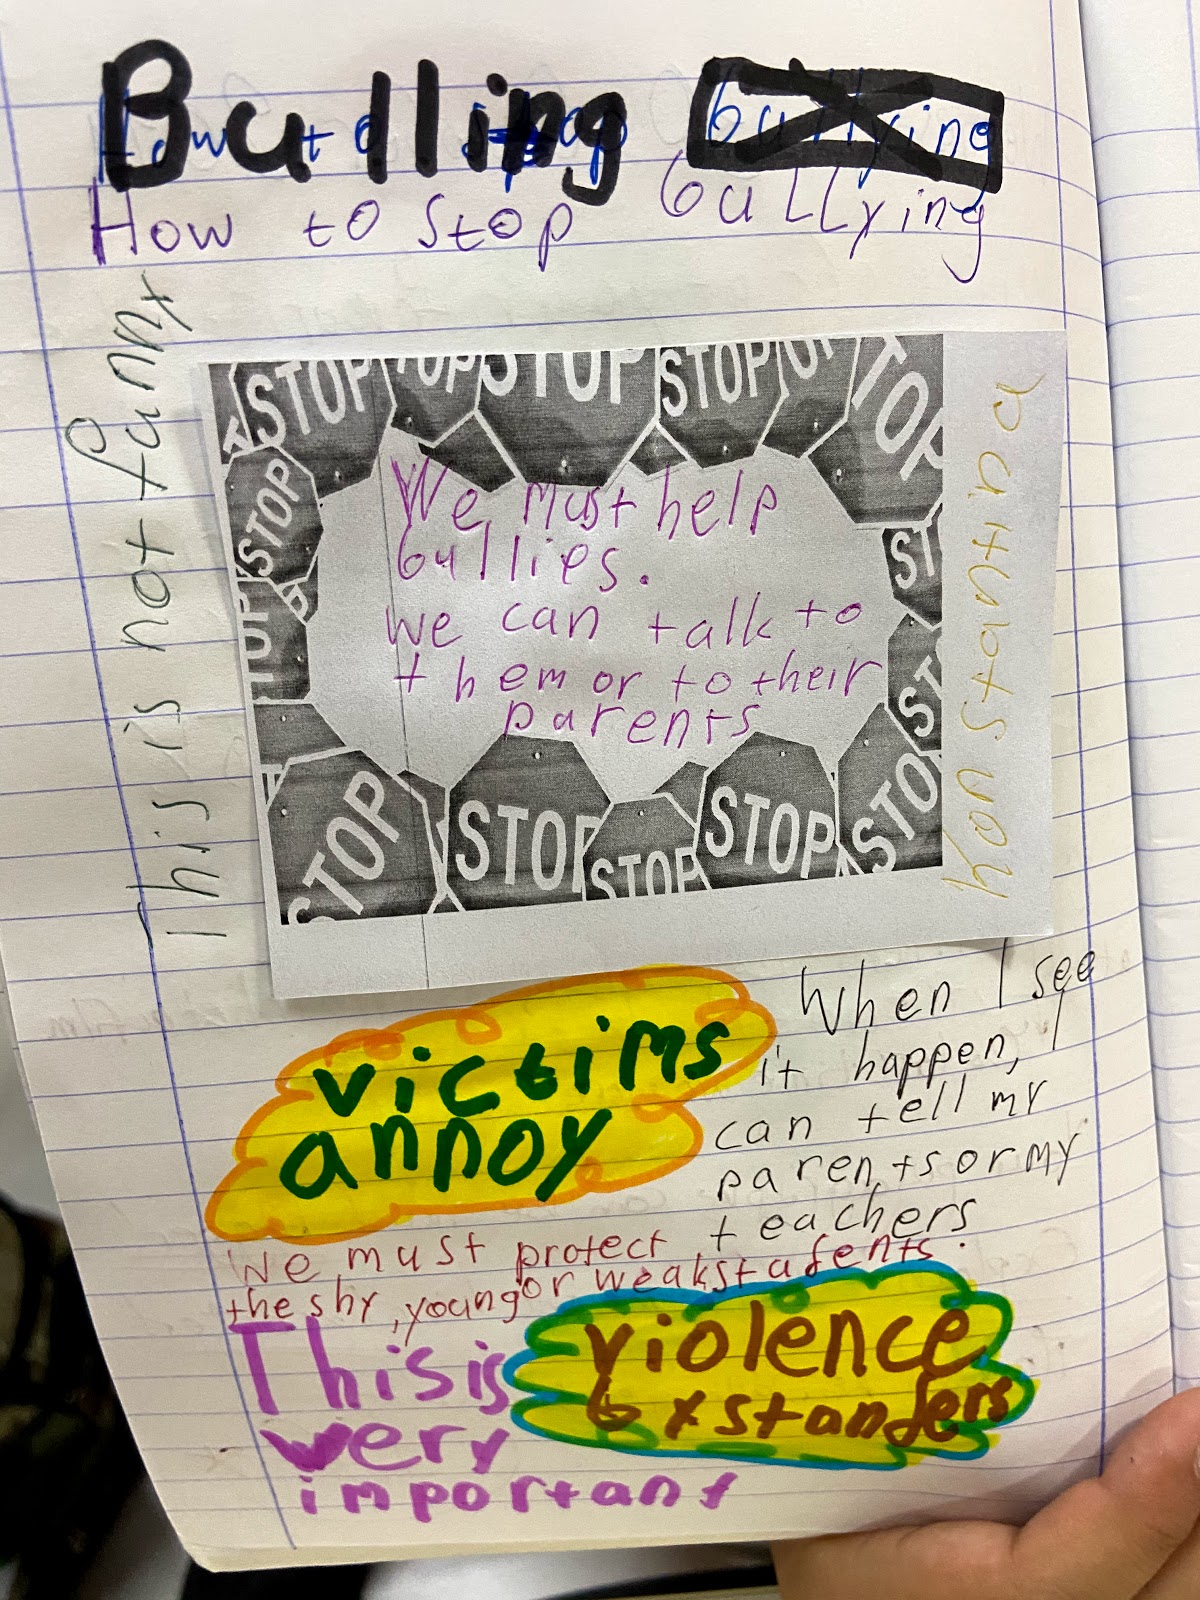 Bulling
bullying
How to stop
How to stop bullying
This is not funny
STOP TOP STOP STOP TOP
STOP
ST
ST
STOP STOP STOP STOP STO
We must help
bullies.
we can talk to
them or to their
parents
victims
annoy
When I see
it happen, I
can tell my
parents or my
teachers
We must protect
the shy, young or weak students.
This is
very
important
violence
bystanders